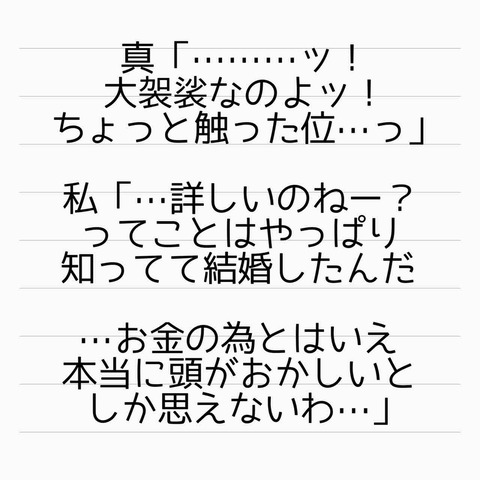 真「………ッ！
大袈裟なのよッ！
ちょっと触った位…っ」
私「…詳しいのねー？
ってことはやっぱり
知ってて結婚したんだ
…お金の為とはいえ
本当に頭がおかしいと
しか思えないわ…」